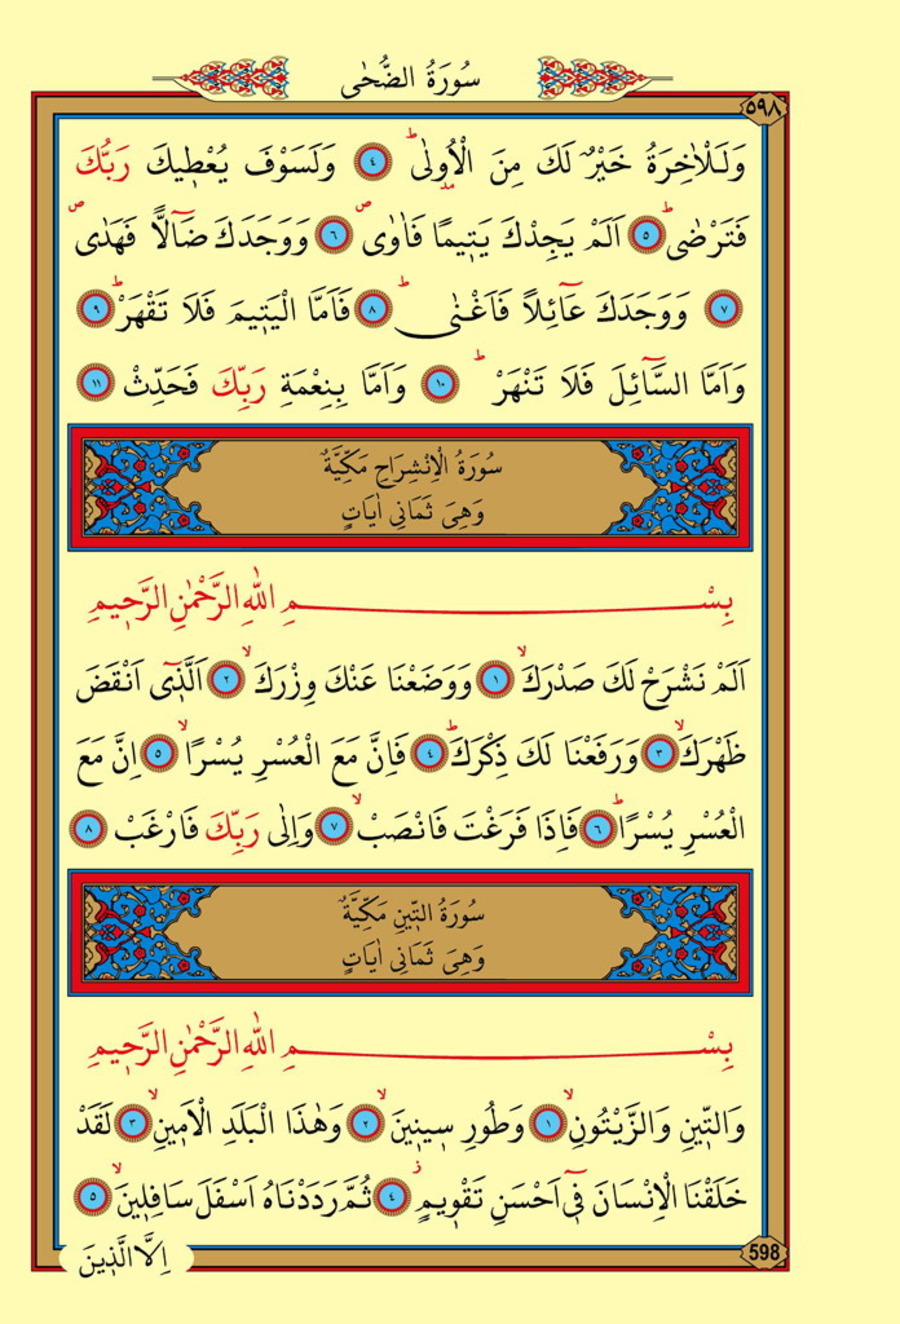 سُورَةُ الضُّحٰى
٥٩٨
وَلَلْاٰخِرَةُ خَيْرٌ لَكَ مِنَ الْاُو۫لٰىۜ ﴿٤﴾ وَلَسَوْفَ يُعْط۪يكَ رَبُّكَ
فَتَرْضٰىۜ ﴿٥﴾ اَلَمْ يَجِدْكَ يَت۪يمًا فَاٰوٰىۖ ﴿٦﴾ وَوَجَدَكَ ضَٓالًّا فَهَدٰىۖ
﴿٧﴾ وَوَجَدَكَ عَٓائِلًا فَاَغْنٰىۜ ﴿٨﴾ فَاَمَّا الْيَت۪يمَ فَلَا تَقْهَرْۜ ﴿٩﴾
وَاَمَّا السَّٓائِلَ فَلَا تَنْهَرْۜ ﴿١٠﴾ وَاَمَّا بِنِعْمَةِ رَبِّكَ فَحَدِّثْ ﴿١١﴾
سُورَةُ الْاِنْشِرَاحِ مَكِّيَّةٌ
وَهِىَ ثَمَانِى اٰيَاتٍ
بِسْمِ اللّٰهِ الرَّحْمٰنِ الرَّح۪يمِ
اَلَمْ نَشْرَحْ لَكَ صَدْرَكَۙ ﴿١﴾ وَوَضَعْنَا عَنْكَ وِزْرَكَۙ ﴿٢﴾ اَلَّذ۪ٓى اَنْقَضَ
ظَهْرَكَۙ ﴿٣﴾ وَرَفَعْنَا لَكَ ذِكْرَكَۜ ﴿٤﴾ فَاِنَّ مَعَ الْعُسْرِ يُسْرًاۙ ﴿٥﴾ اِنَّ مَعَ
الْعُسْرِ يُسْرًاۜ ﴿٦﴾ فَاِذَا فَرَغْتَ فَانْصَبْۙ ﴿٧﴾ وَاِلٰى رَبِّكَ فَارْغَبْ ﴿٨﴾
سُورَةُ التّ۪ينِ مَكِّيَّةٌ
وَهِىَ ثَمَانِى اٰيَاتٍ
بِسْمِ اللّٰهِ الرَّحْمٰنِ الرَّح۪يمِ
وَالتّ۪ينِ وَالزَّيْتُونِۙ ﴿١﴾ وَطُورِ س۪ين۪ينَۙ ﴿٢﴾ وَهٰذَا الْبَلَدِ الْاَم۪ينِۙ ﴿٣﴾ لَقَدْ
خَلَقْنَا الْاِنْسَانَ ف۪ٓى اَحْسَنِ تَقْو۪يمٍۘ ﴿٤﴾ ثُمَّ رَدَدْنَاهُ اَسْفَلَ سَافِل۪ينَۙ ﴿٥﴾
598
اِلَّا الَّذ۪ينَ